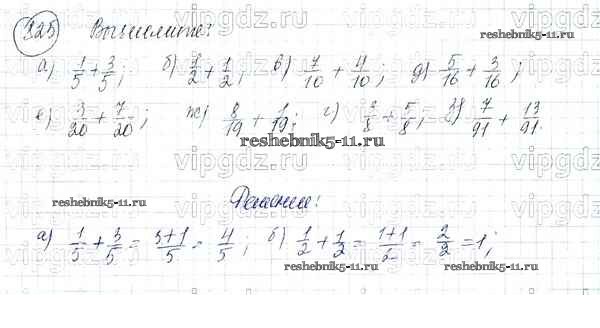 925 Вычислите:
а) 1/5 + 3/5; б) 1/2 + 1/2; в) 7/10 + 4/10; д) 5/16 + 3/16;
е) 3/20 + 7/20; ж) 8/19 + 1/19; г) /8 + 5/8; з) 7/91 + 13/91
Решение:
а) 1/5 + 3/5 = 3+1/5 = 4/5; б) 1/2 + 1/2 = 1+1/2 = 2/2 = 1;
vipgdz.ru
reshebnik5-11.ru